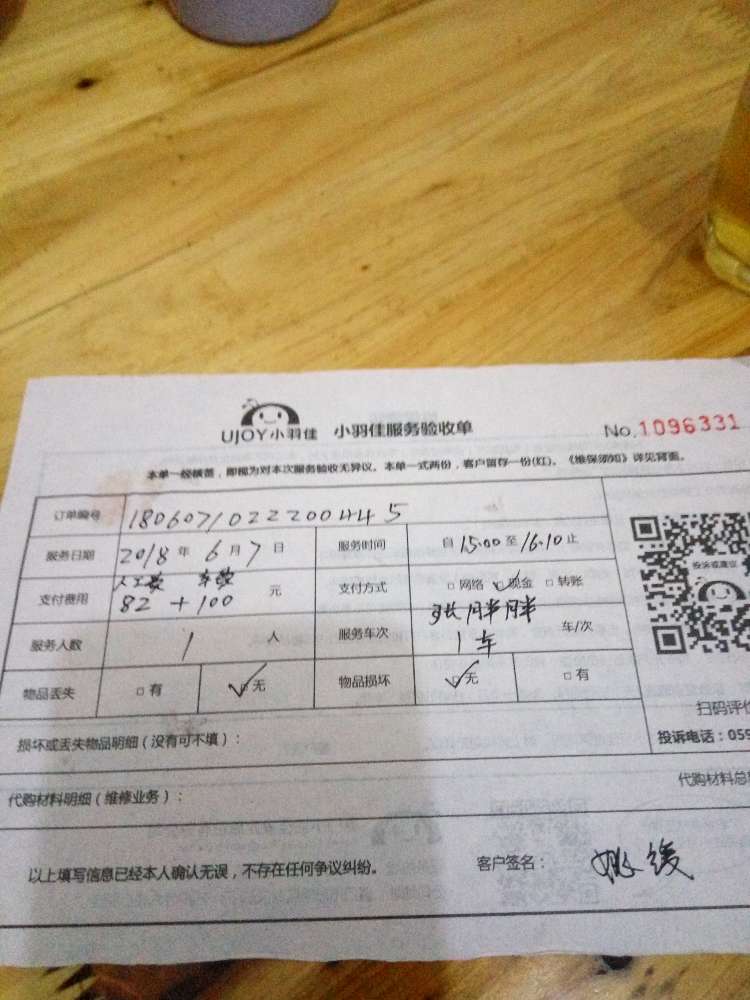 UJOY小羽佳 小羽佳服务验收单 No.1096331
本单一经填盖，即视为对本次服务验收无异议。本单一式两份，客户留存一份(红)。《维保须知》详见背面。
订单编号 180607102220044 5
服务日期 2018 年 6 月 7 日 服务时间 自 15:00 至 16:10 止
人工费 车费
支付费用 82 + 100 元 支付方式 □ 网络 □ 现金 □ 转账
张胖胖
服务人数 1 人 服务车次 1车 车/次
物品丢失 □ 有 □ 无 物品损坏 □ 无 □ 有
投诉或建议
扫码评价
损坏或丢失物品明细（没有可不填）：
投诉电话：059
代购材料明细（维修业务）：
代购材料总
以上填写信息已经本人确认无误，不存在任何争议纠纷。 客户签名：